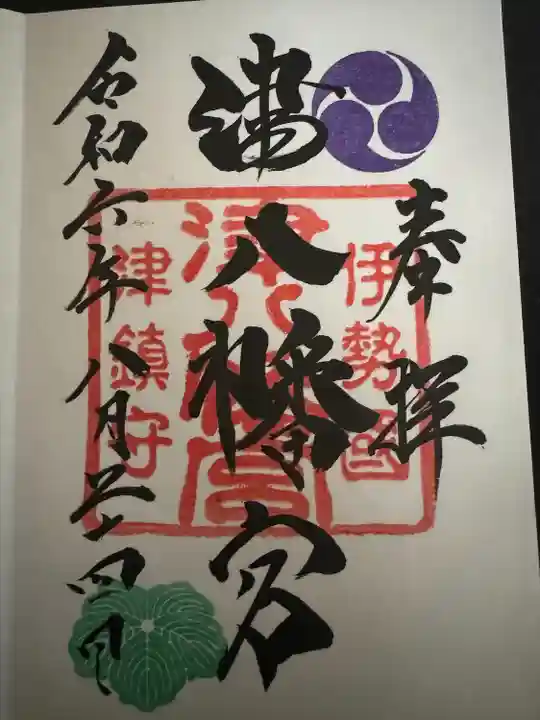 奉拝
伊勢國
津八幡宮
津八幡宮
津鎮守
令和六年八月二十四日